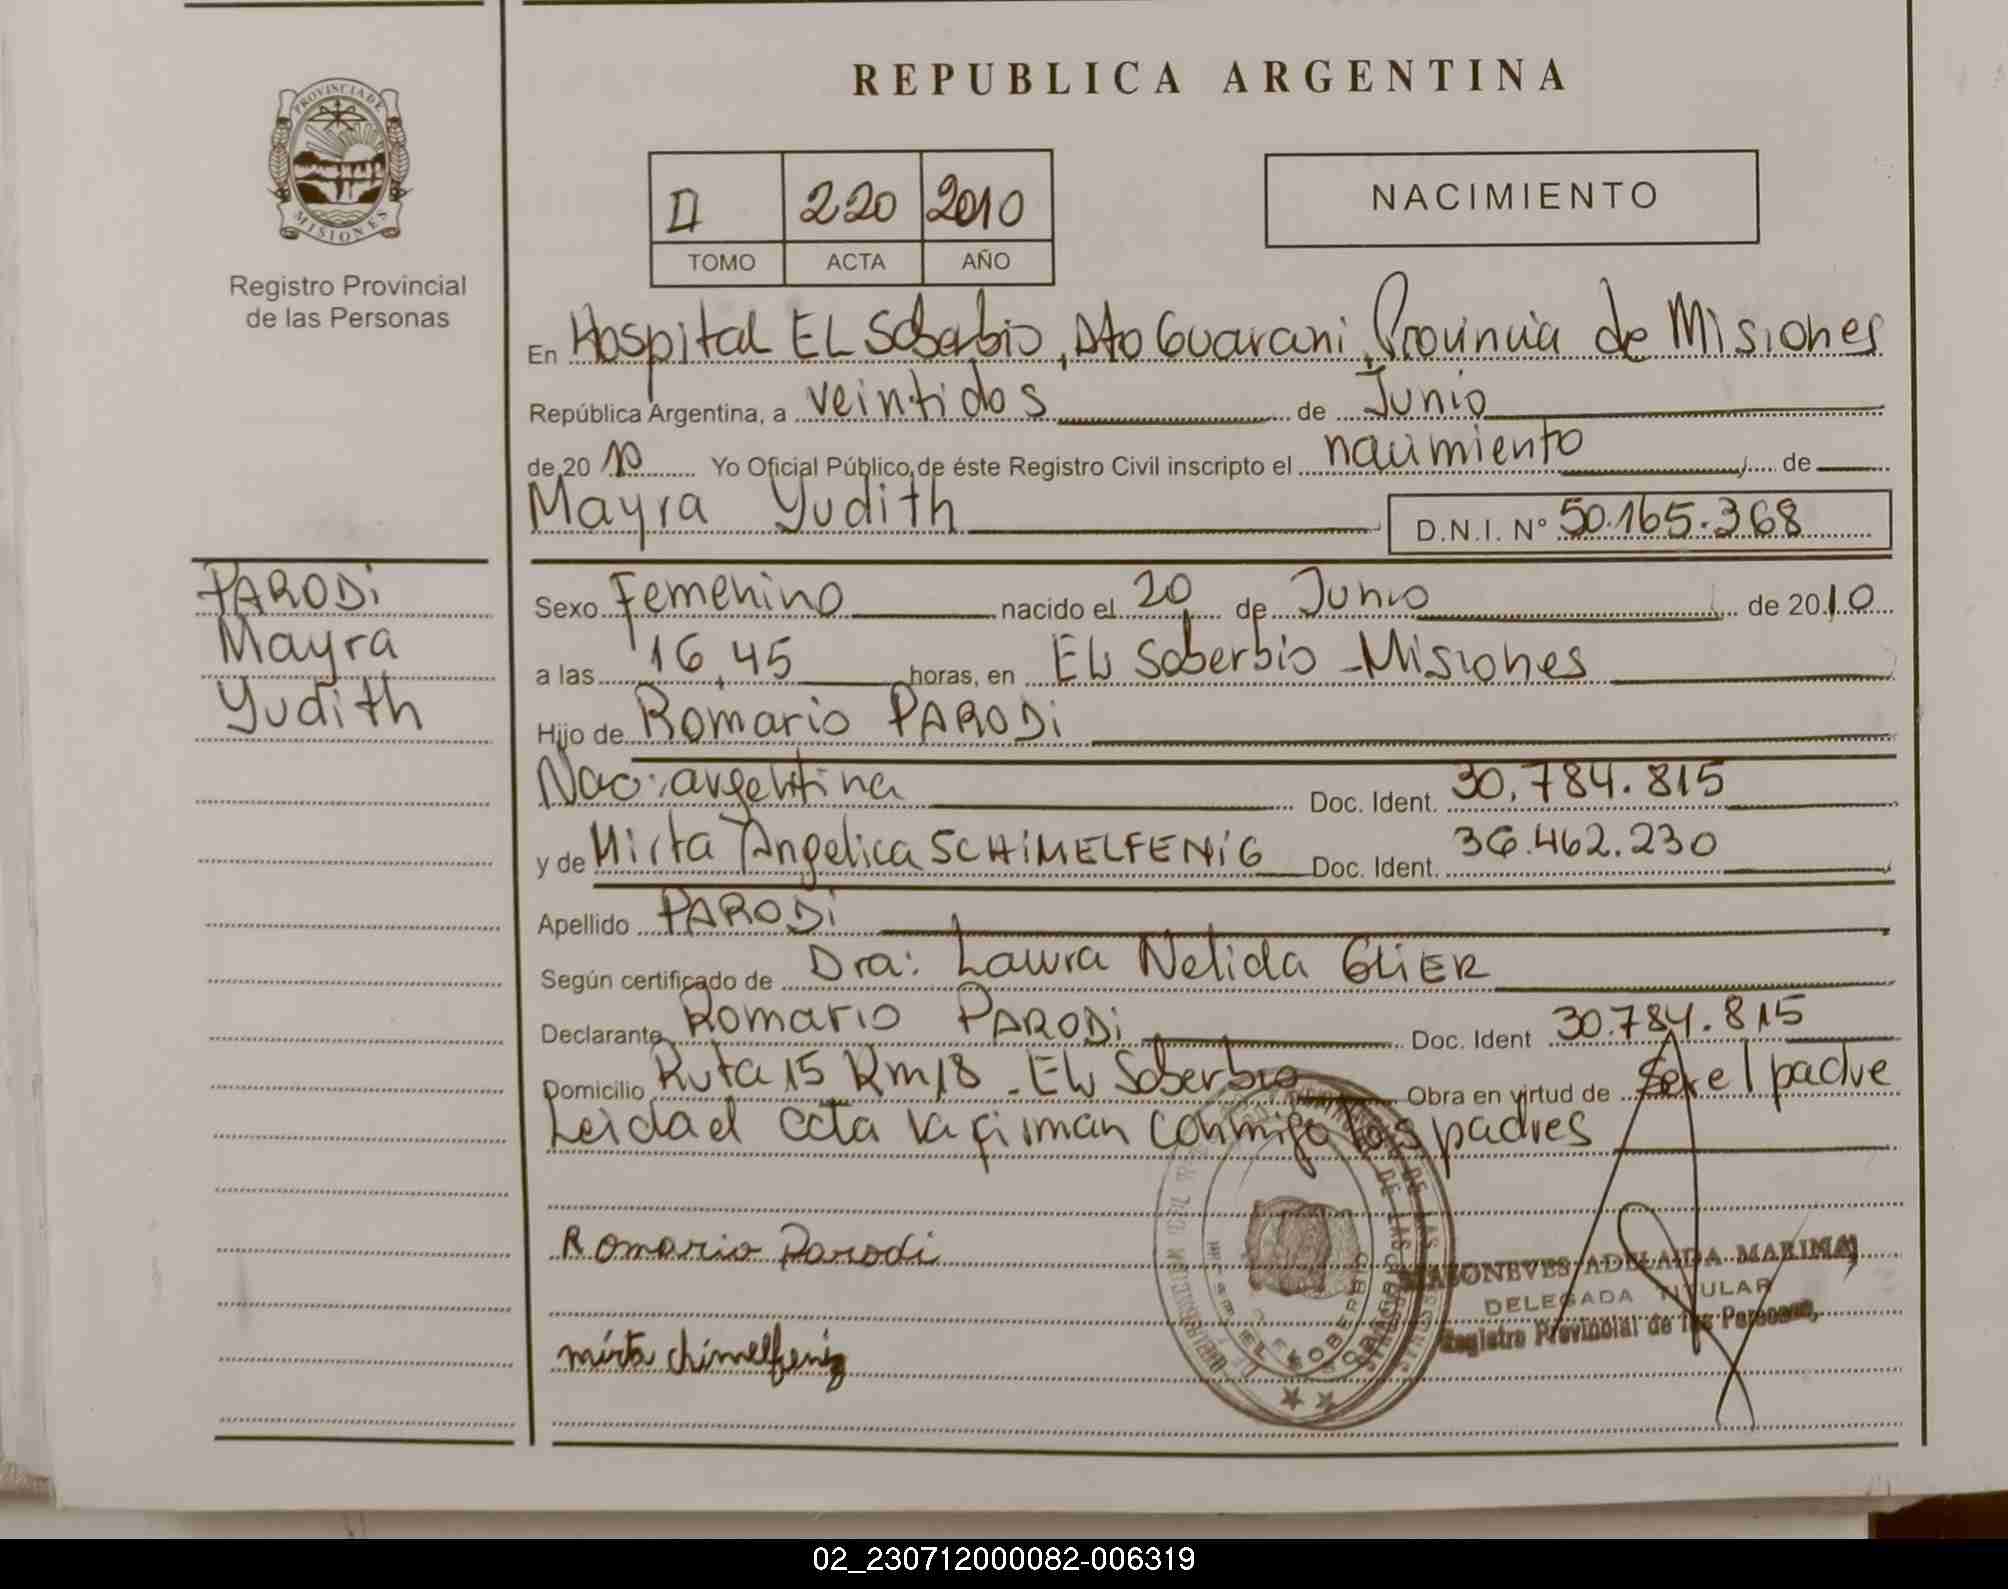 REPUBLICA ARGENTINA
PROVINCIA DE
MISIONES
Registro Provincial
de las Personas
II 220 2010
TOMO ACTA AÑO
NACIMIENTO
En Hospital EL Soberbio, Dto Guarani, Provincia de Misiones
República Argentina, a veintidos de Junio
de 20 10 Yo Oficial Público de éste Registro Civil inscripto el nacimiento de
Mayra Yudith D.N.I. Nº 50.165.368
PARODI
Mayra
Yudith
Sexo Femenino nacido el 20 de Junio de 2010
a las 16,45 horas, en EL Soberbio - Misiones
Hijo de Romario PARODI
Nac: argentina Doc. Ident. 30.784.815
y de Mirta Angelica SCHIMELFENIG Doc. Ident. 36.462.230
Apellido PARODI
Según certificado de Dra: Laura Nelida GLIER
Declarante Romario PARODI Doc. Ident 30.784.815
Domicilio Ruta 15 Km 18 - EL Soberbio Obra en virtud de Ser el padre
Leida el acta la firman conmigo los padres
Romario Parodi
mirta chimelfenig
EL SOBERBIO
ADELAIDA MARIMA
DELEGADA TITULAR
Registro Provincial de las Personas
02_230712000082-006319